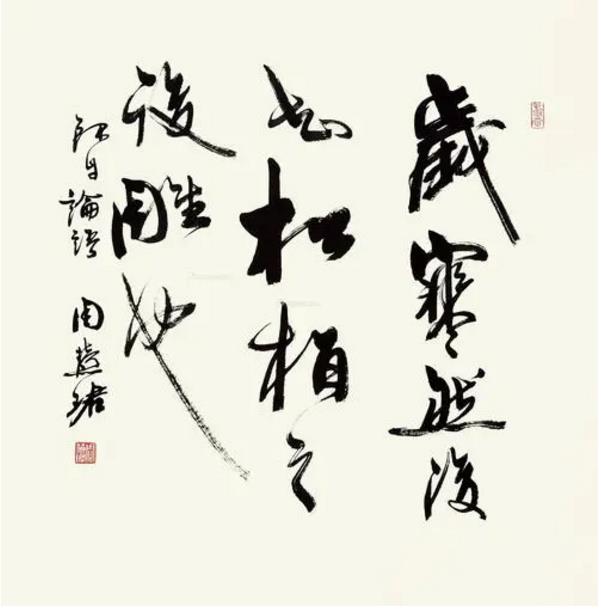 歲寒然後
知松柏之
後雕也
錄自論語 周慧珺